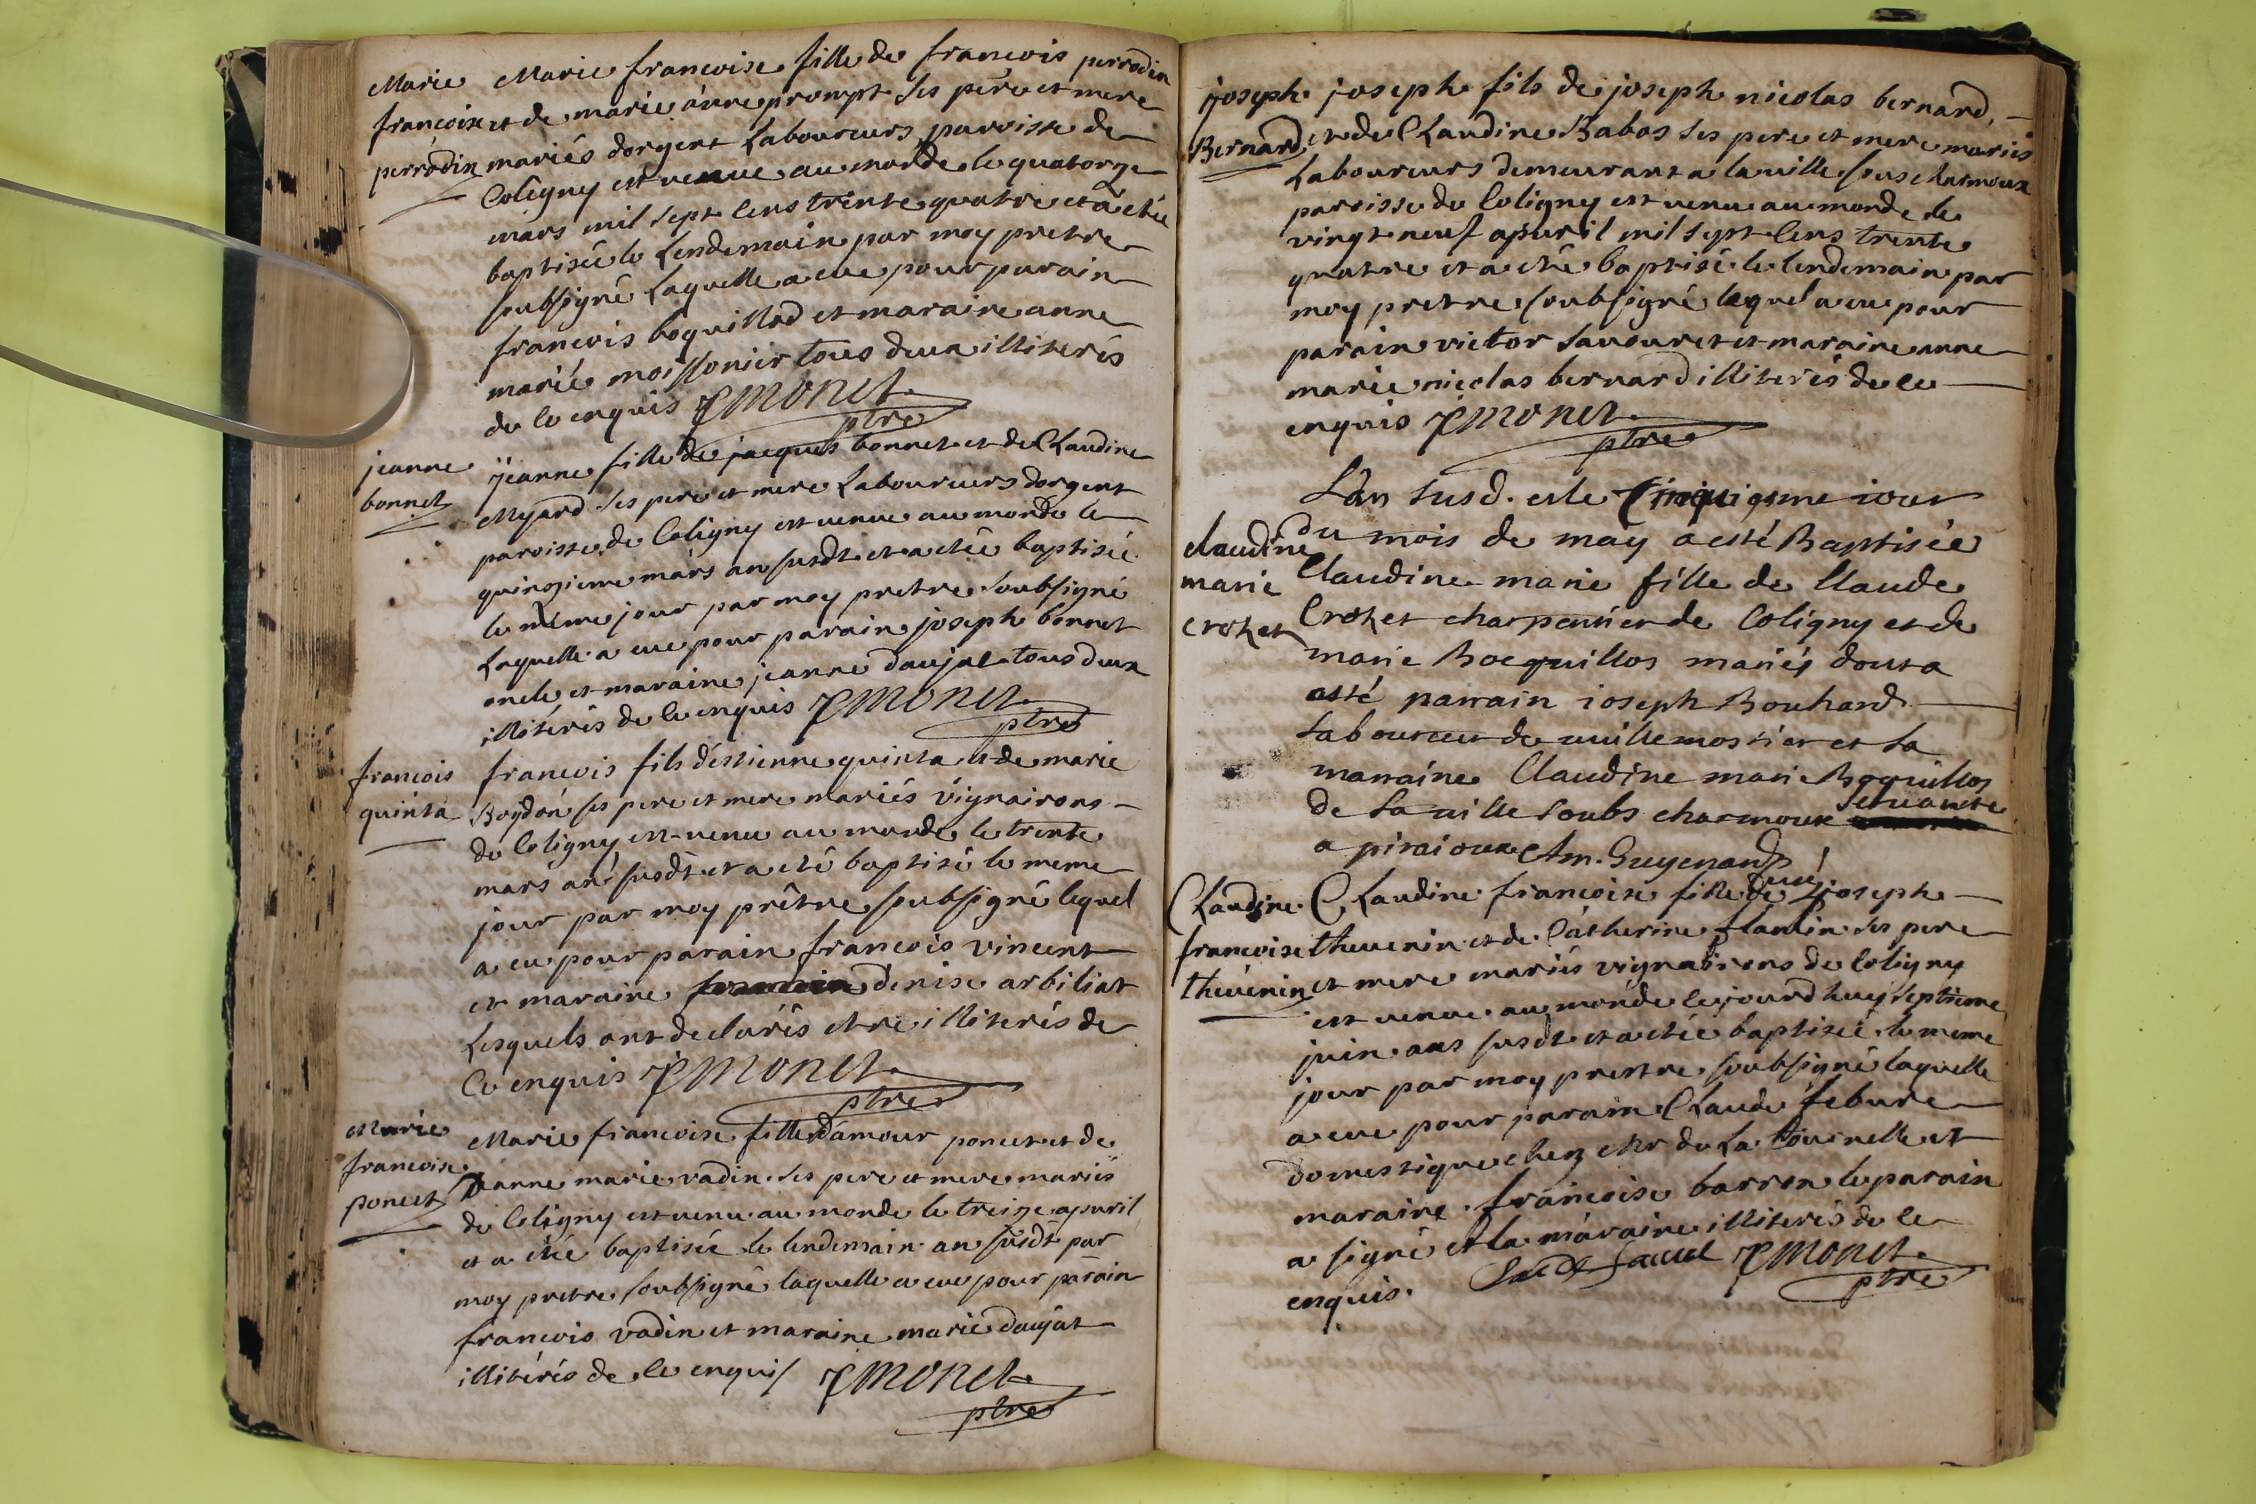 Marie
francoise
perrodin
Marie francoise fille de francois perrodin
et de marie anne prompt ses pere et mere
mariés dorgent Laboureurs paroisse de
Coligny est venue au monde le quatorze
mars mil sept Cens trente quatre et a etée
baptisée le Lendemain par moy pretre
soubsigné Laquelle a eue pour parain
francois boquillod et maraine anne
marie moissonier tous deux illiterés
de ce enquis JMonet
ptre
jeanne
bonnet
jeanne fille de jacques bonnet et de Claudine
Myard ses pere et mere Laboureurs dorgent
paroisse de Coligny est venue au monde le
quinzieme mars an susdt et a etée baptisée
le même jour par moy pretre soubsigné
Laquelle a eue pour parain joseph bonnet
oncle et maraine jeanne daujat tous deux
illiterés de ce enquis JMonet
ptre
francois
quinta
francois fils déstienne quinta et de marie
Boydon ses pere et mere mariés vignairons
de Coligny est venu au monde le trente
mars an susdt et a eté baptisé le meme
jour par moy prêtre soubsigné lequel
a eu pour parain francois vincent
et maraine denise arbiliat
Lesquels ont declarés etre illiterés de
Ce enquis JMonet
ptre
Marie
francoise
poncet
Marie francoise fille damour poncet et de
anne marie vadin ses pere et mere mariés
de Coligny est venu au monde le treize apuril
et a etée baptisée le lendemain an susdt par
moy pretre soubsigné laquelle a eue pour parain
francois vadin et maraine marie daujat
illiterés de ce enquis JMonet
ptre
joseph
Bernard
joseph fils de joseph nicolas bernard
et de Claudine Babas ses pere et mere mariés
Laboureurs demeurant a la ville sous charmoux
paroisse de Coligny est venu au monde le
vingt neuf apuril mil sept Cens trente
quatre et a eté baptisé le lendemain par
moy pretre soubsigné lequel a eu pour
parain victor savouret et maraine anne
marie nicolas bernard illiterés de ce
enquis JMonet
ptre
claudine
marie
crozet
L'an susd. et le Cinquiesme iour
du mois de may a esté Baptisée
Claudine marie fille de Claude
Crozet charpentier de Coligny et de
marie Bocquillos mariés dont a
esté parrain ioseph Bouhard
Laboureur de uillemostier et la
marraine Claudine marie Boquillos
de La uille soubs charmoux seruante
a piraioux Am. Guyenard
curé
Claudine
francoise
thevenin
Claudine francoise fille de joseph
thevenin et de Catherine flamin ses pere
et mere mariés vignairons de Coligny
est venue au monde le jourdhuy septieme
juin ans susdt et a etée baptisée le meme
jour par moy prestre soubsigné laquelle
a eue pour parain Claude febure
domestique chez Mr de La Tournelle et
maraine francoise barron le parain
a signé et la maraine illiterés de ce
enquis. JMonet
ptre